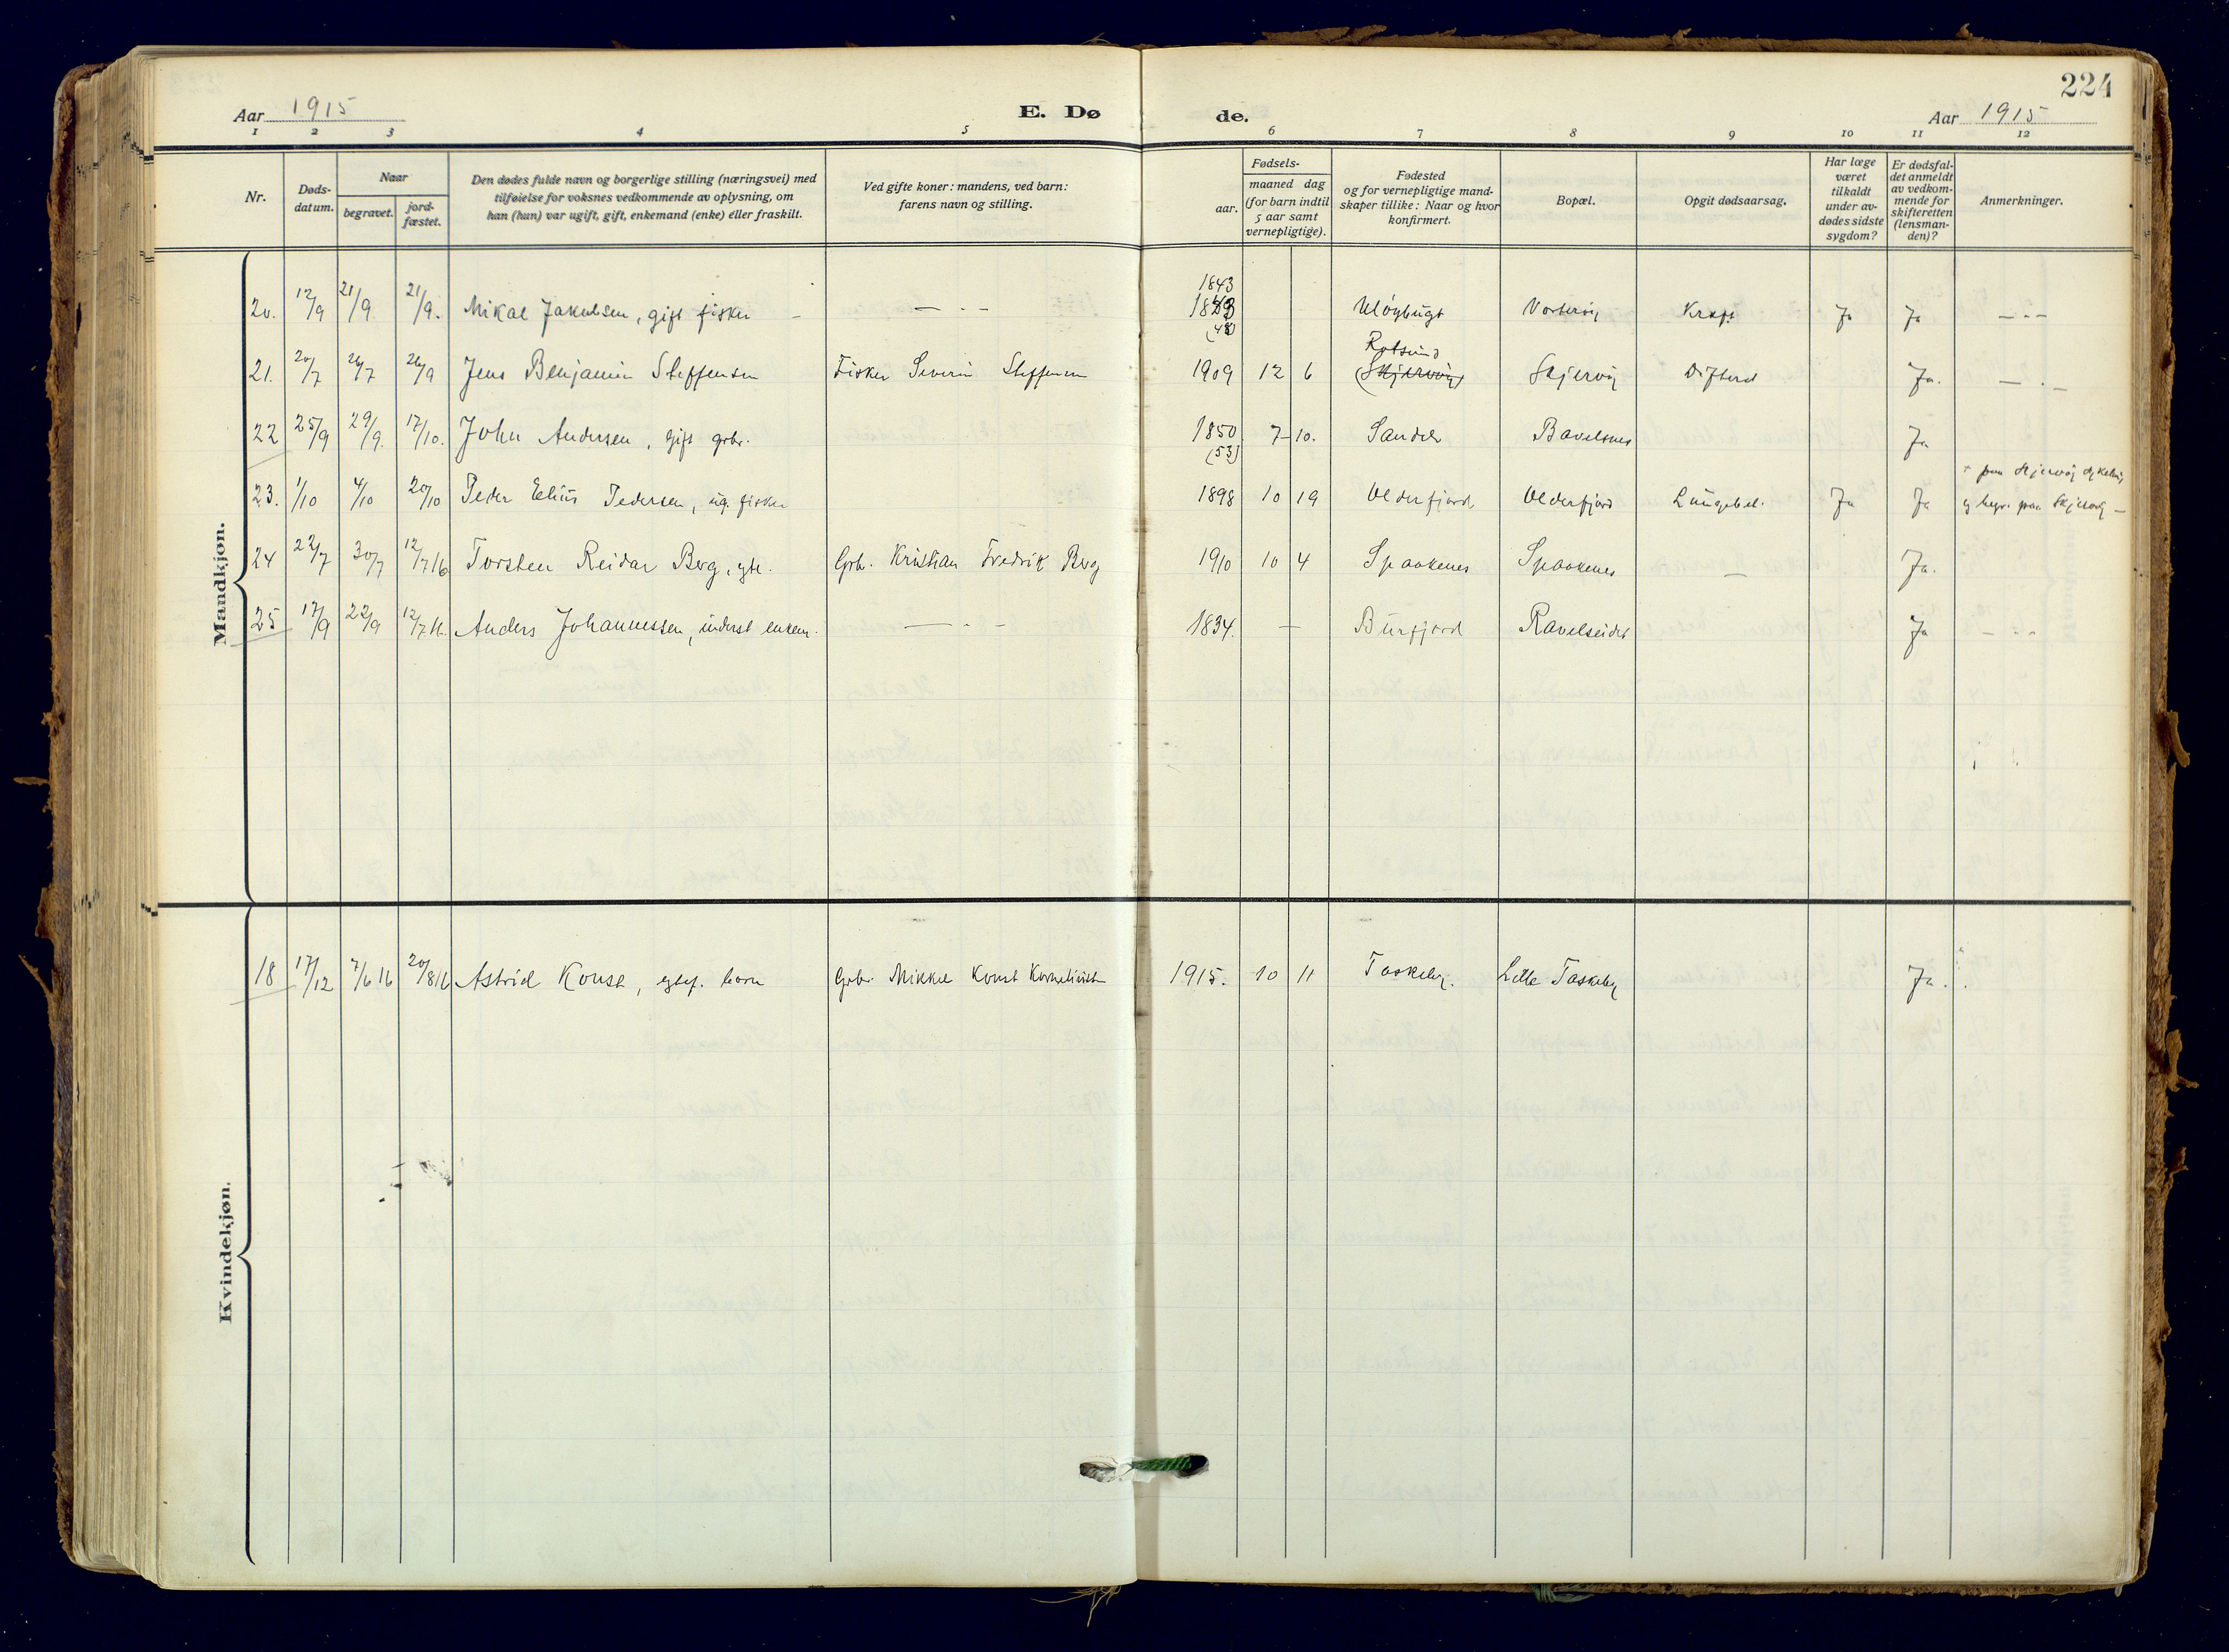 224
Aar 1915
E. Dø
de.
Aar 1915
1 2 3 4 5 6 7 8 9 10 11 12
Nr.
Døds-
datum.
Naar
begravet.
jord-
fæstet.
Den dødes fulde navn og borgerlige stilling (næringsvei) med
tilføielse for voksnes vedkommende av oplysning, om
han (hun) var ugift, gift, enkemand (enke) eller fraskilt.
Ved gifte koner: mandens, ved barn:
farens navn og stilling.
Fødsels-
aar.
maaned dag
(for barn indtil
5 aar samt
vernepligtige).
Fødested
og for vernepligtige mand-
skaper tillike: Naar og hvor
konfirmert.
Bopæl.
Opgit dødsaarsag.
Har læge
været
tilkaldt
under av-
dødes sidste
sygdom?
Er dødsfal-
det anmeldt
av vedkom-
mende for
skifteretten
(lensman-
den)?
Anmerkninger.
Mandkjøn.
1843
20. 12/9 21/9 21/9. Mikal Jakobsen, gift fisker - — - - Uløybugt Vorterøy Kræft Ja Ja — - -
Rotsund
21. 20/7 26/7 26/9 Jens Benjamin Steffensen Fisker Severin Steffensen 1909 12 6 (Skjervøy) Skjervøy Difterit Ja. — - —
22 25/9 29/9. 17/10. John Andersen, gift grbr. 1850 7 - 10. Sandør Bavelsnes Ja
(53)
+ paa Skjervøy sykehus,
23. 1/10 4/10 20/10 Peder Elius Pedersen, ug. fisker 1898 10 19 Olderfjord Olderfjord Lungebet. Ja Ja og begr. paa Skjervøy —
24 22/7 30/7 12/7 16 Torsten Reidar Berg, gbr. Grbr. Kristian Fredrik Berg 1910 10 4 Spaakenes Spaakenes — Ja.
25 17/9 22/9 12/7 16. Anders Johannessen, inderst enkem. — - - 1834. — Burfjord Ravelseidet Ja - - -
Kvindekjøn.
18 17/12 7/6 16 20/8 16 Astrid Konst, egtef. barn Grbr. Mikkel Konst Korneliussen 1915. 10 11 Taskeby. Lille Taskeby Ja.